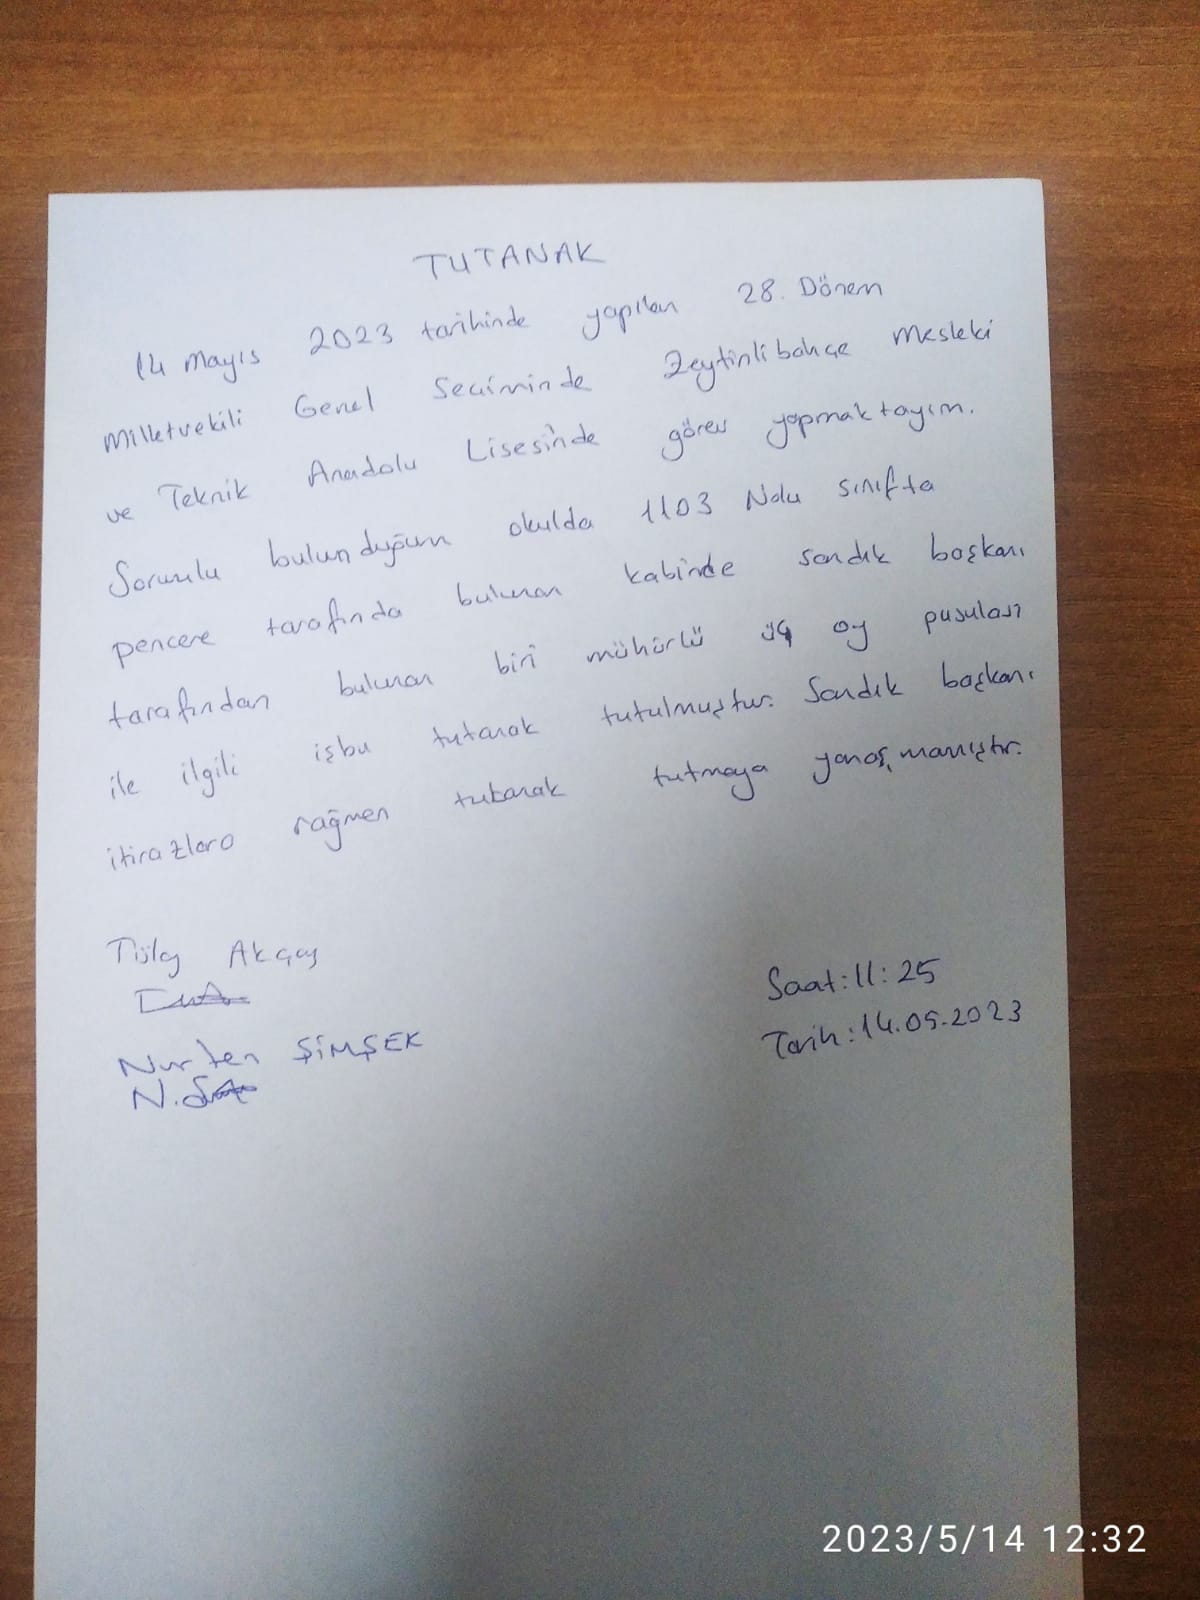 TUTANAK
14 Mayıs 2023 tarihinde yapılan 28. Dönem
Milletvekili Genel Seçiminde Zeytinlibahçe Mesleki
ve Teknik Anadolu Lisesinde görev yapmaktayım.
Sorumlu bulunduğum okulda 1103 Nolu sınıfta
pencere tarafında bulunan kabinde sandık başkanı
tarafından bulunan biri mühürlü üç oy pusulası
ile ilgili işbu tutanak tutulmuştur. Sandık başkanı
itirazlara rağmen tutanak tutmaya yanaşmamıştır.
Akçay
Nurten ŞİMŞEK
Saat: 11:25
Tarih: 14.05.2023
2023/5/14 12:32